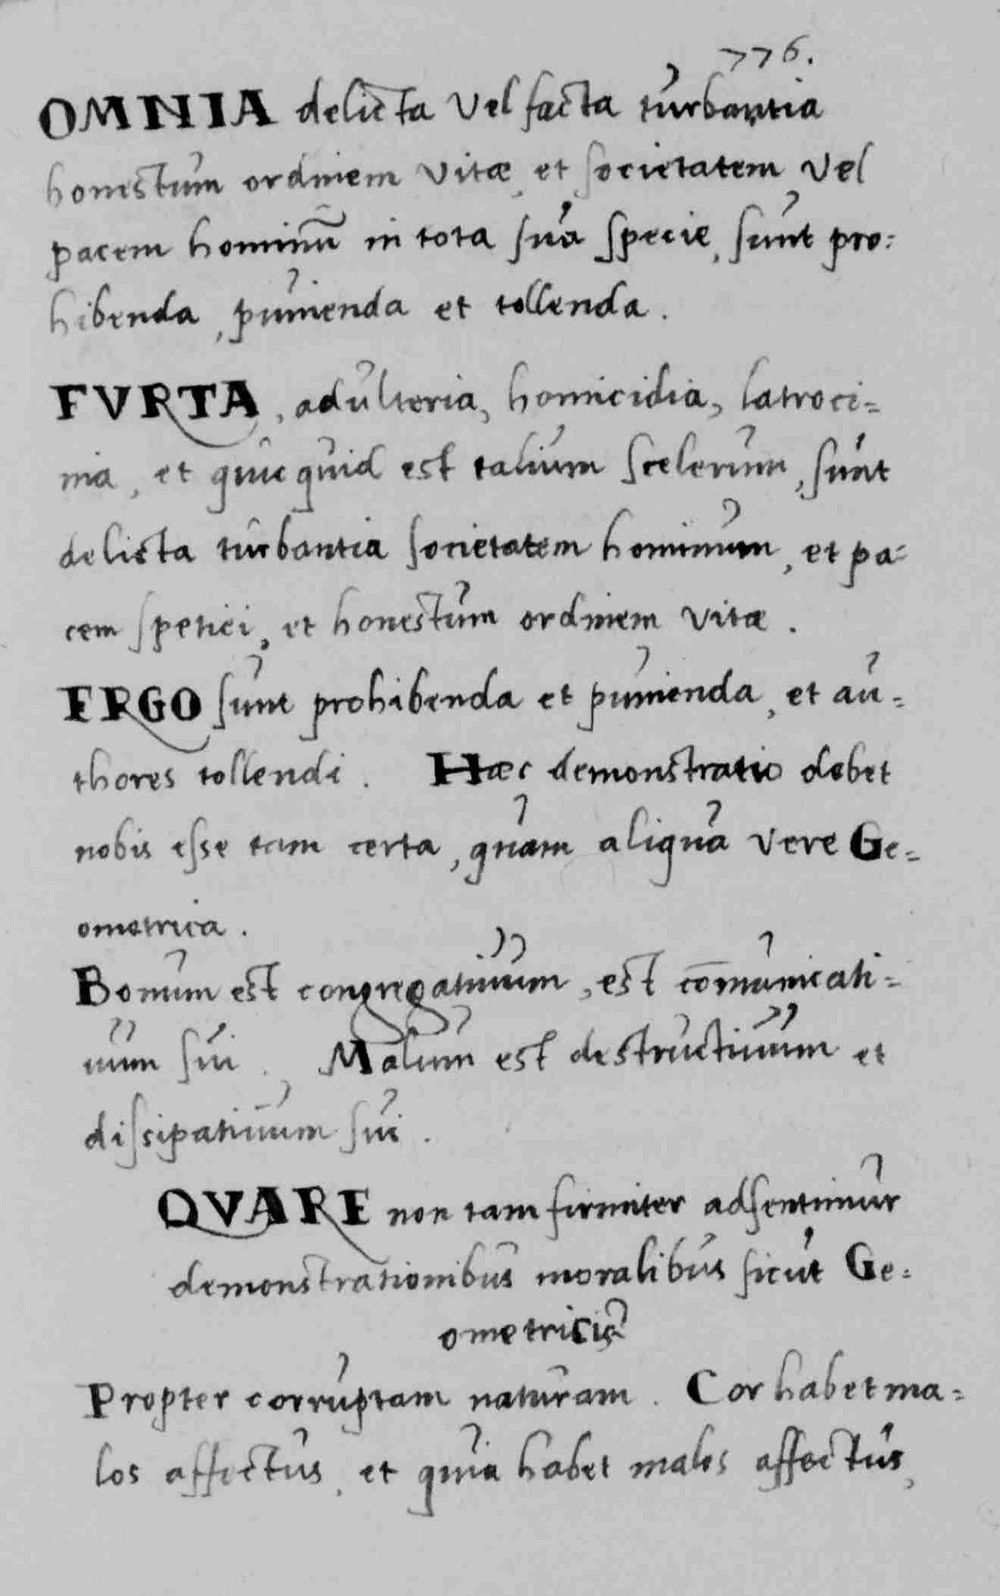 776.
OMNIA delicta vel facta turbantia
honestum ordinem vitæ, et societatem vel
pacem hominũ in tota sua specie, sunt pro:
hibenda, punienda et tollenda.
FVRTA, adulteria, homicidia, latroci=
nia, et quicquid est talium scelerum, sunt
delicta turbantia societatem hominum, et pa=
cem spetiei, et honestum ordinem vitæ.
ERGO sunt prohibenda et punienda, et au=
thores tollendi. Hæc demonstratio debet
nobis esse tam certa, quam aliqua vere Ge=
ometrica.
Bonum est congregatiuum, est com̄unicati=
uum sui. Malum est destructiuum et
dissipatiuum sui.
QVARE non tam firmiter adsentimur
demonstrationibus moralibus sicut Ge=
ometricis?
Propter corruptam naturam. Cor habet ma=
los affectus, et quia habet malos affectus,